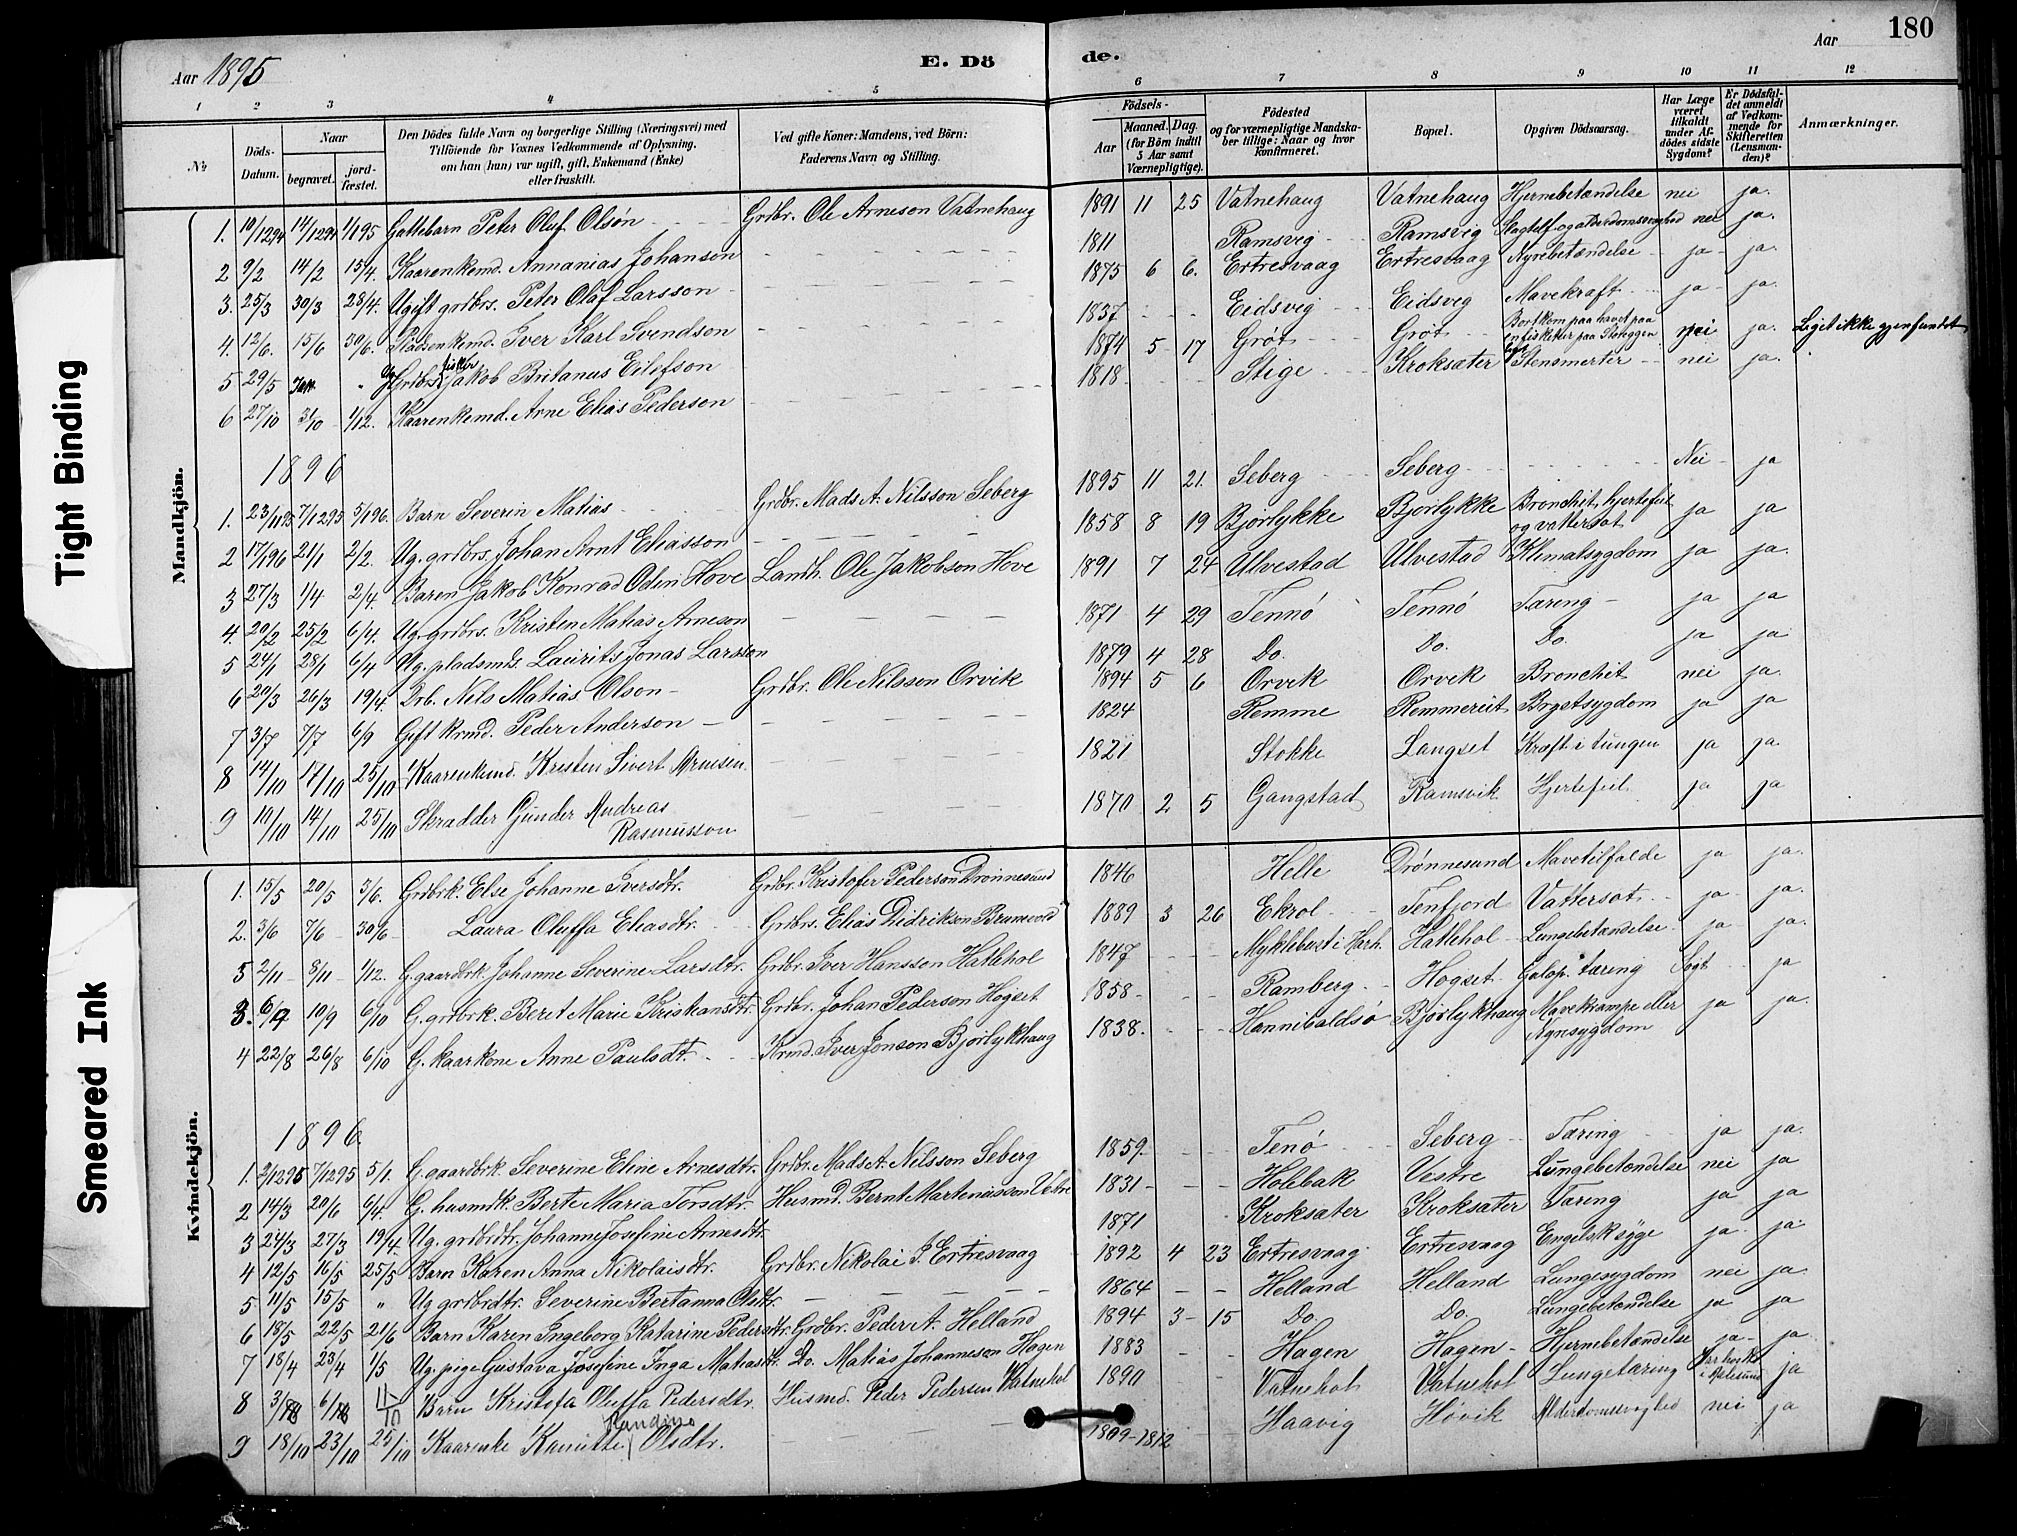 180
Aar 1895
E. Dö
de.
Aar
1 2 3 4 5 6 7 8 9 10 11 12
Nr
Döds-Datum.
Naar
begravet.
jord-fæstet.
Den Dödes fulde Navn og borgerlige Stilling (Næringsvei) med
Tilföiende for Voxnes Vedkommende af Oplysning.
om han (hun) var ugift, gift, Enkemand (Enke)
eller fraskilt.
Ved gifte Koner: Mandens, ved Börn:
Faderens Navn og Stilling.
Födsels-
Aar
Maaned. Dag.
(for Börn indtil
5 Aar samt
Værnepligtige).
Födested
og for værnepligtige Mandska-
ber tillige: Naar og hvor
konfirmeret.
Bopæl.
Opgiven Dödsaarsag.
Har Læge
været
tilkaldt
under Af-
dödes sidste
Sygdom?
Er Dödsfal-
det anmeldt
af Vedkom-
mende for
Skifteretten
(Lensman-
den)?
Anmærkninger.
Tight Binding
Mandkjön.
1. 10/1294 14/1294 1/195 Gattebarn Peter Oluf Olsøn Grdbr. Ole Arneson Vatnehaug 1891 11 25 Vatnehaug Vatnehaug Hjernebetændelse nei ja.
2 9/2 14/2 15/4. Kaarenkemd. Annanias Johansen 1811 Ramsvig Ramsvig Slagtilf. og alderdomssvaghed nei ja.
3. 25/3 30/3 28/4. Ugift grdbrs. Peter Olaf Larsson 1875 6 6. Ertresvaag Ertresvaag Nyrebetændelse ja ja.
4. 12/6. 15/6 30/6. Pladsenkemd. Iver Karl Svendson 1837 Eidsvig Eidsvig Mavekræft ja ja.
5 29/5 " Ug Grdbrs. fisker Jakob Britanus Eilefson 1874 5 17 Grøt Grøt Bortkom paa havet paa en fisketur paa Storeggen nei ja. Liget ikke gjenfundet
6 27/10 31/10 1/12. Kaarenkemd. Arne Elias Pederson 1818 Stige Kroksæter Stensmerter nei ja.
1896
1. 23/1195 7/1295 5/196. Barn Severin Matias Grdbr. Mads A. Nilsson Seberg 1895 11 21. Seberg Seberg Nei ja
2 17/196 21/1 2/2. Ug. grdbrs. Johan Arnt Eliasson 1858 8 19 Bjørlykke Bjørlykke Bronchit, hjertefeil og vattersot ja ja
3 27/3 1/4 2/4. Baren Jakob Konrad Odin Hove Landh. Ole Jakobson Hove 1891 7 24 Ulvestad Ulvestad Klimatsygdom ja ja
4. 20/2 25/2 6/4. Ug. grdbrs. Kristen Matias Arneson 1871 4 29 Tennø Tennø Tæring ja ja
5 24/1 28/1 6/4 Ug. pladsmds. Laurits Jonas Larsson 1879 4 28 Do. Do. Do. ja ja
6 20/3 26/3 19/4. Drb. Nils Matias Olson Grdbr. Ole Nilsson Orvik 1894 5 6 Orvik Orvik Bronchit nei ja.
7 3/7 7/7 6/9 Gift krmd. Peder Anderson 1824 Remme Remmereit Brystsygdom ja ja
8 14/10 17/10 25/10 Kaarenkemd. Kristen Sivert 1821 Stokke Langset Kræft i tungen ja ja.
9 10/10 14/10 25/10 Skradder Gunder Andreas 1870 2 5 Gangstad Ramsvik Hjertefeil. ja ja
Rasmusson
Smeared Ink
Kvindekjön.
1. 15/5 20/5 3/6. Grdbrk. Else Johanne Iversdtr. Grdbr. Kristofer Pederson Drønnesund 1846 Helle Drønnesund Mavetilfælde ja ja.
2. 3/6 7/6 30/6 Laura Oluffa Eliasdtr. Grdbrs. Elias Didrikson Brunevold 1889 3 26 Ekrol Tenfjord Vattersot ja ja.
5 2/11 8/11 1/12. G. gaardbrk. Johanne Severine Larsdtr. Grdbr. Iver Hansson Hatlehol 1847 Myklebust i Harh. Hatlehol Lungebetændelse ja ja.
3. 6/9 10/9 6/10 G. grdbrk. Beret Marie Kristiansdtr. Grdbr. Johan Pederson Høgset 1858 Ramberg Høgset Galop. tæring Søgt ja
4 22/8 26/8 6/10 G. kaarkone Anne Paulsdt. Krmd. Iver Jonson Bjørlykhaug 1838. Hannibaldsø Bjørlykhaug Mavekrampe eller ja ja.
1896.
1. 2/1295 7/1295 5/1. G. gaardbrk. Severine Eline Arnesdtr. Grdbr. Mads A. Nilsson Seberg 1859. Tenø Seberg Tæring ja ja.
2 14/3 20/6 6/4. G. husmdk. Berte Maria Torsdtr. Husmd. Bernt Martenusson Vestre 1831 Holebak Vestre Lungebetændelse nei ja
3 24/3 27/3 19/4. Ug. grdbrdtr. Johanne Josefine Arnesdtr. 1871 Kroksæter Kroksæter Tæring ja ja
4 12/5 16/5 25/5 Barn Karen Anna Nikolaisdtr. Grdbr. Nikolai P. Ertresvaag 1892 4 23 Ertresvaag Ertresvaag Engelsk syge ja. ja.
5 11/5 15/5 " Ug grdbrdtr. Severine Bertanna Olsdtr. 1864 Helland Helland Lungesygdom nei ja
6 18/5 22/5 21/6 Barn Karen Ingeborg Katarine Pedersdtr. Grdbr. Peder A. Helland 1894 3 15 Do. Do. Lungebetændelse ja ja
7 18/4 23/4 1/5 Ug. pige Gustava Josefine Inga Matiasdtr. Do. Matias Johanneson Hagen 1883 Hagen Hagen Hjernebetændelse ja ja
8 11/10 Barn Kristofa Oluffa Pedersdtr. Husmd. Peder Pedersen Vatnehol 1890 Vatnehol Vatnehol Lungetæring ja
9 18/10 23/10 25/10 Kaarenke Kanutte Randine Olsdtr. 1809-1812 Haavig Høvik Alderdomssvaghed nei ja